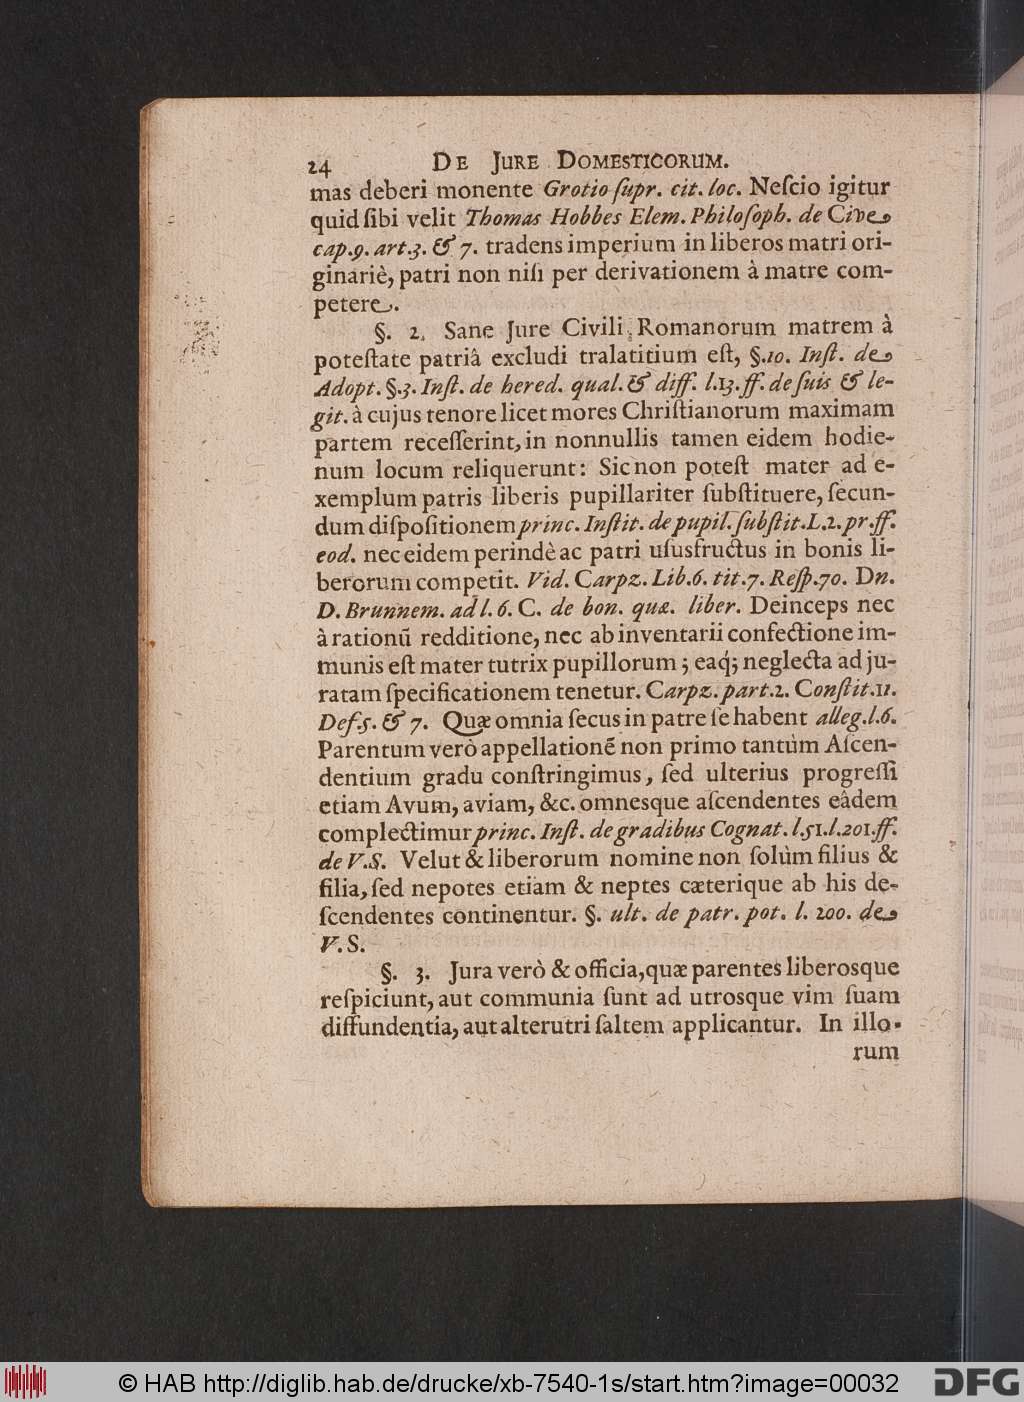 24 DE JURE DOMESTICORUM.
mas deberi monente Grotio ſupr. cit. loc. Neſcio igitur
quid ſibi velit Thomas Hobbes Elem. Philoſoph. de Cive
cap.9. art.3. & 7. tradens imperium in liberos matri ori-
ginariè, patri non niſi per derivationem à matre com-
petere.
§. 2. Sane Jure Civili Romanorum matrem à
poteſtate patriâ excludi tralatitium eſt, §.10. Inſt. de
Adopt. §.3. Inſt. de hered. qual. & diff. l.13. ff. de ſuis & le-
git. à cujus tenore licet mores Chriſtianorum maximam
partem receſſerint, in nonnullis tamen eidem hodie-
num locum reliquerunt: Sic non poteſt mater ad e-
xemplum patris liberis pupillariter ſubſtituere, ſecun-
dum diſpoſitionem princ. Inſtit. de pupil. ſubſtit. L.2. pr. ff.
eod. nec eidem perindè ac patri uſusfructus in bonis li-
berorum competit. Vid. Carpz. Lib.6. tit.7. Reſp.70. Dn.
D. Brunnem. ad l. 6. C. de bon. quæ. liber. Deinceps nec
à rationū redditione, nec ab inventarii confectione im-
munis eſt mater tutrix pupillorum; eaq́; neglecta ad ju-
ratam ſpecificationem tenetur. Carpz. part.2. Conſtit.11.
Def.5. & 7. Quæ omnia ſecus in patre ſe habent alleg.l.6.
Parentum verò appellationē non primo tantùm Aſcen-
dentium gradu conſtringimus, ſed ulterius progreſſi
etiam Avum, aviam, &c. omnesque aſcendentes eâdem
complectimur princ. Inſt. de gradibus Cognat. l.51. l.201. ff.
de V.S. Velut & liberorum nomine non ſolùm filius &
filia, ſed nepotes etiam & neptes cæterique ab his de-
ſcendentes continentur. §. ult. de patr. pot. l. 200. de
V. S.
§. 3. Jura verò & officia, quæ parentes liberosque
reſpiciunt, aut communia ſunt ad utrosque vim ſuam
diffundentia, aut alterutri ſaltem applicantur. In illo-
rum
© HAB http://diglib.hab.de/drucke/xb-7540-1s/start.htm?image=00032
DFG